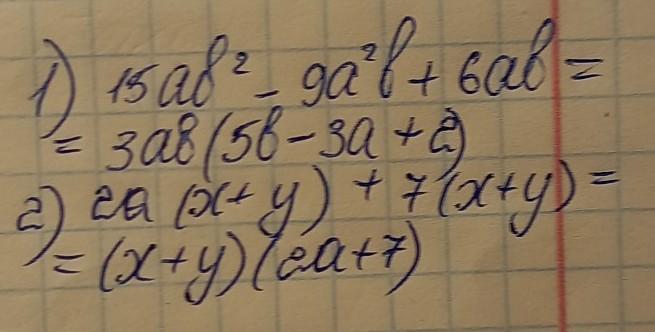 1) 15ab² - 9a²b + 6ab =
= 3ab(5b - 3a + 2)
2) 2a(x+y) + 7(x+y) =
= (x+y)(2a+7)